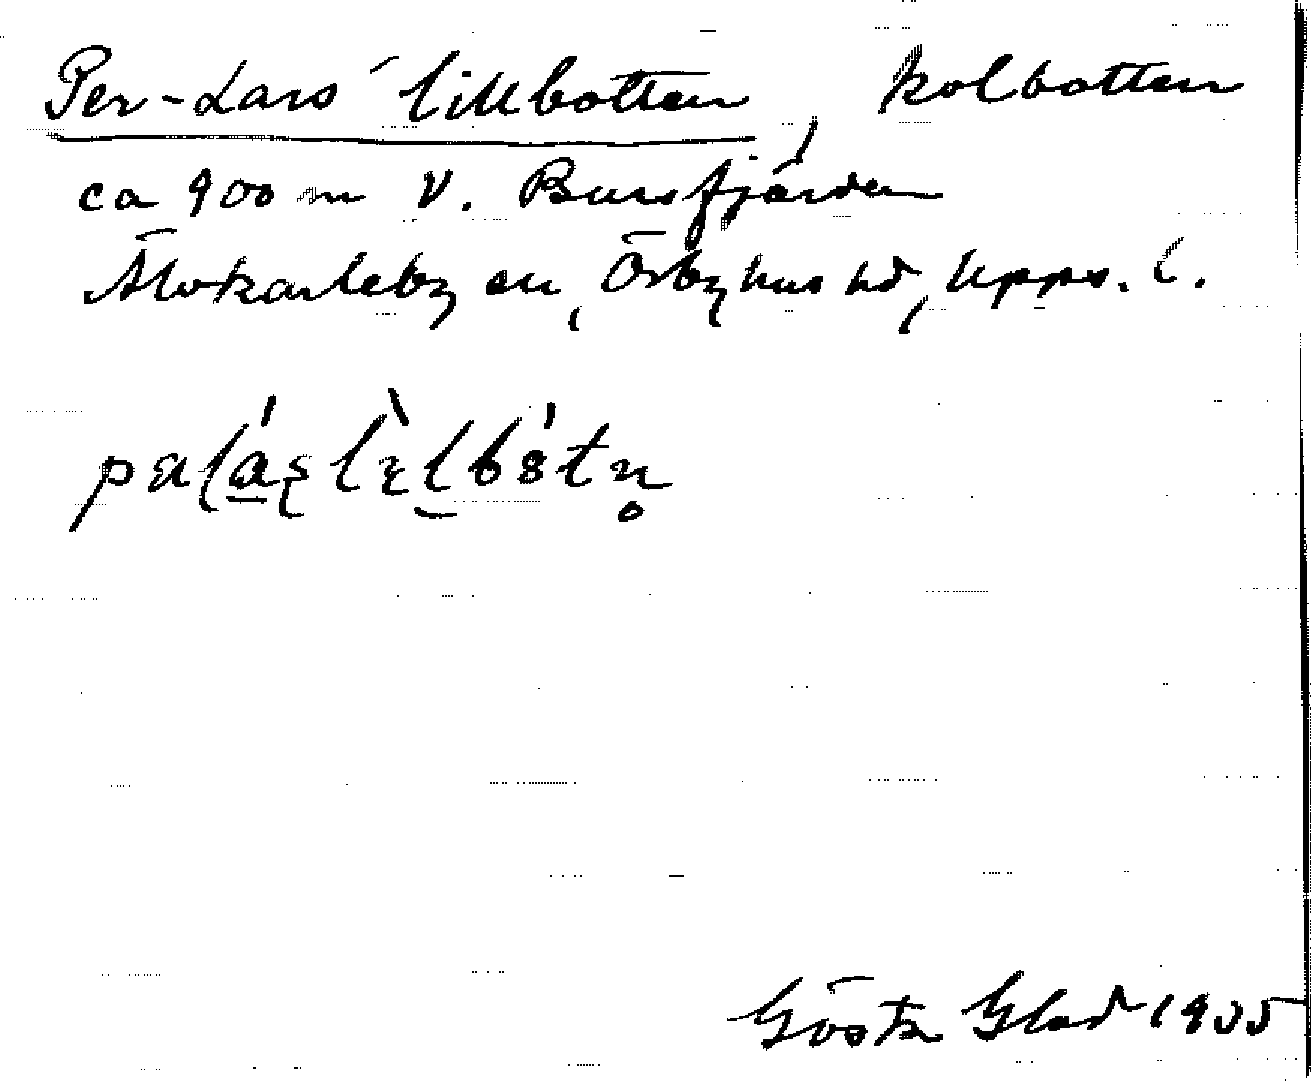 Per-Lars' lillbotten, kolbotten
ca 900 m V. Bursfjärden
Älvkarleby sn, Örbyhus hd, Upps. l.
Gösta Glad 1935